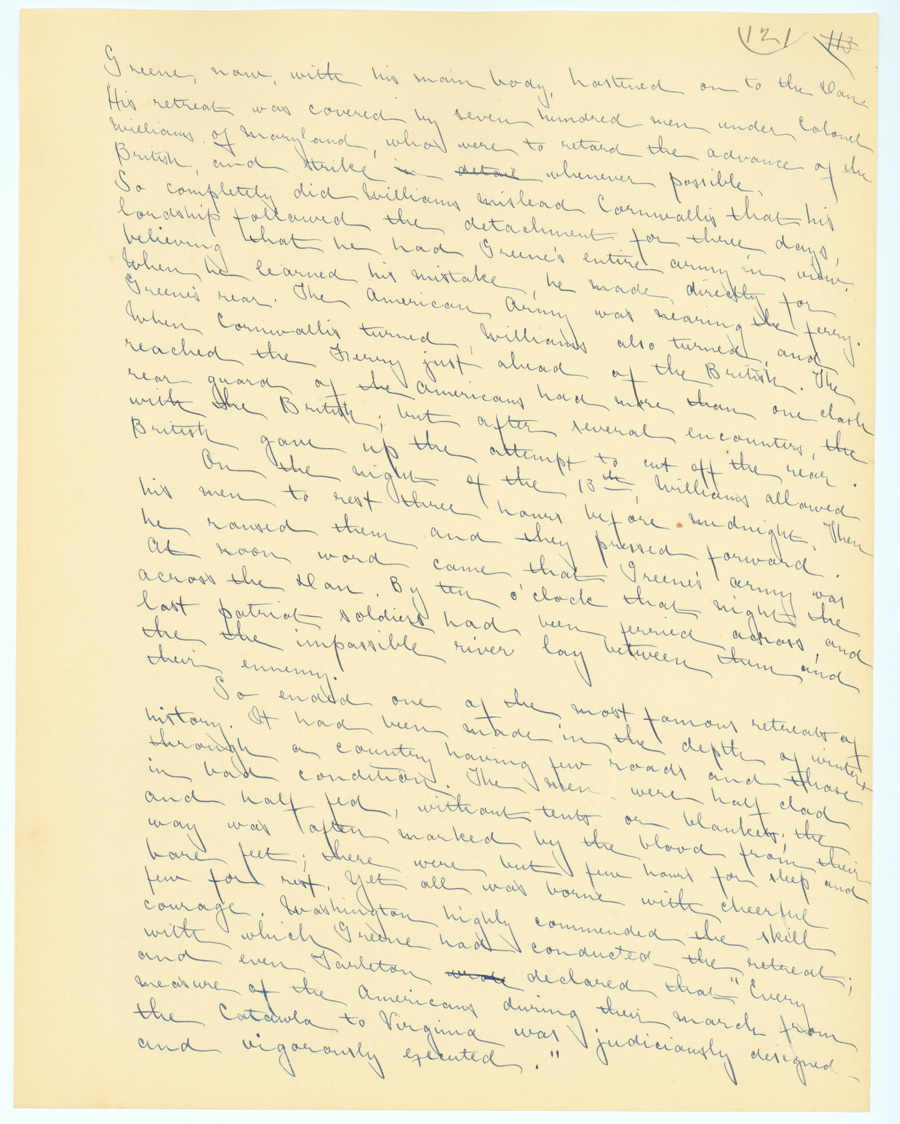 121 113
Greene, now, with his main body, hastened on to the Dan.
His retreat was covered by seven hundred men under Colonel
Williams of Maryland, who were to retard the advance of the
British, and strike in detail whenever possible.
So completely did Williams mislead Cornwallis that his
lordship followed the detachment for three days,
believing that he had Greene's entire army in view.
When he learned his mistake, he made directly for
Greene's rear. The American Army was nearing the ferry.
When Cornwallis turned, Williams also turned, and
reached the Ferry just ahead of the British. The
rear guard of the Americans had more than one clash
with the British; but after several encounters, the
British gave up the attempt to cut off the rear.
On the night of the 13th, Williams allowed
his men to rest three hours before midnight. Then
he roused them and they pressed forward.
At noon word came that Greene's army was
across the Dan. By ten o'clock that night the
last patriot soldiers had been ferried across, and
the the impassible river lay between them and
their ennemy.
So ended one of the most famous retreats of
history. It had been made in the depth of winter,
through a country having few roads and those
in bad condition. The men were half clad
and half fed, without tents or blankets, the
way was often marked by the blood from their
bare feet; there were but few hours for sleep and
few for rest. Yet all was borne with cheerful
courage. Washington highly commended the skill
with which Greene had conducted the retreat;
and even Tarleton wrote declared that "Every
measure of the Americans during their march from
the Catawba to Virginia was judiciously designed
and vigorously executed."